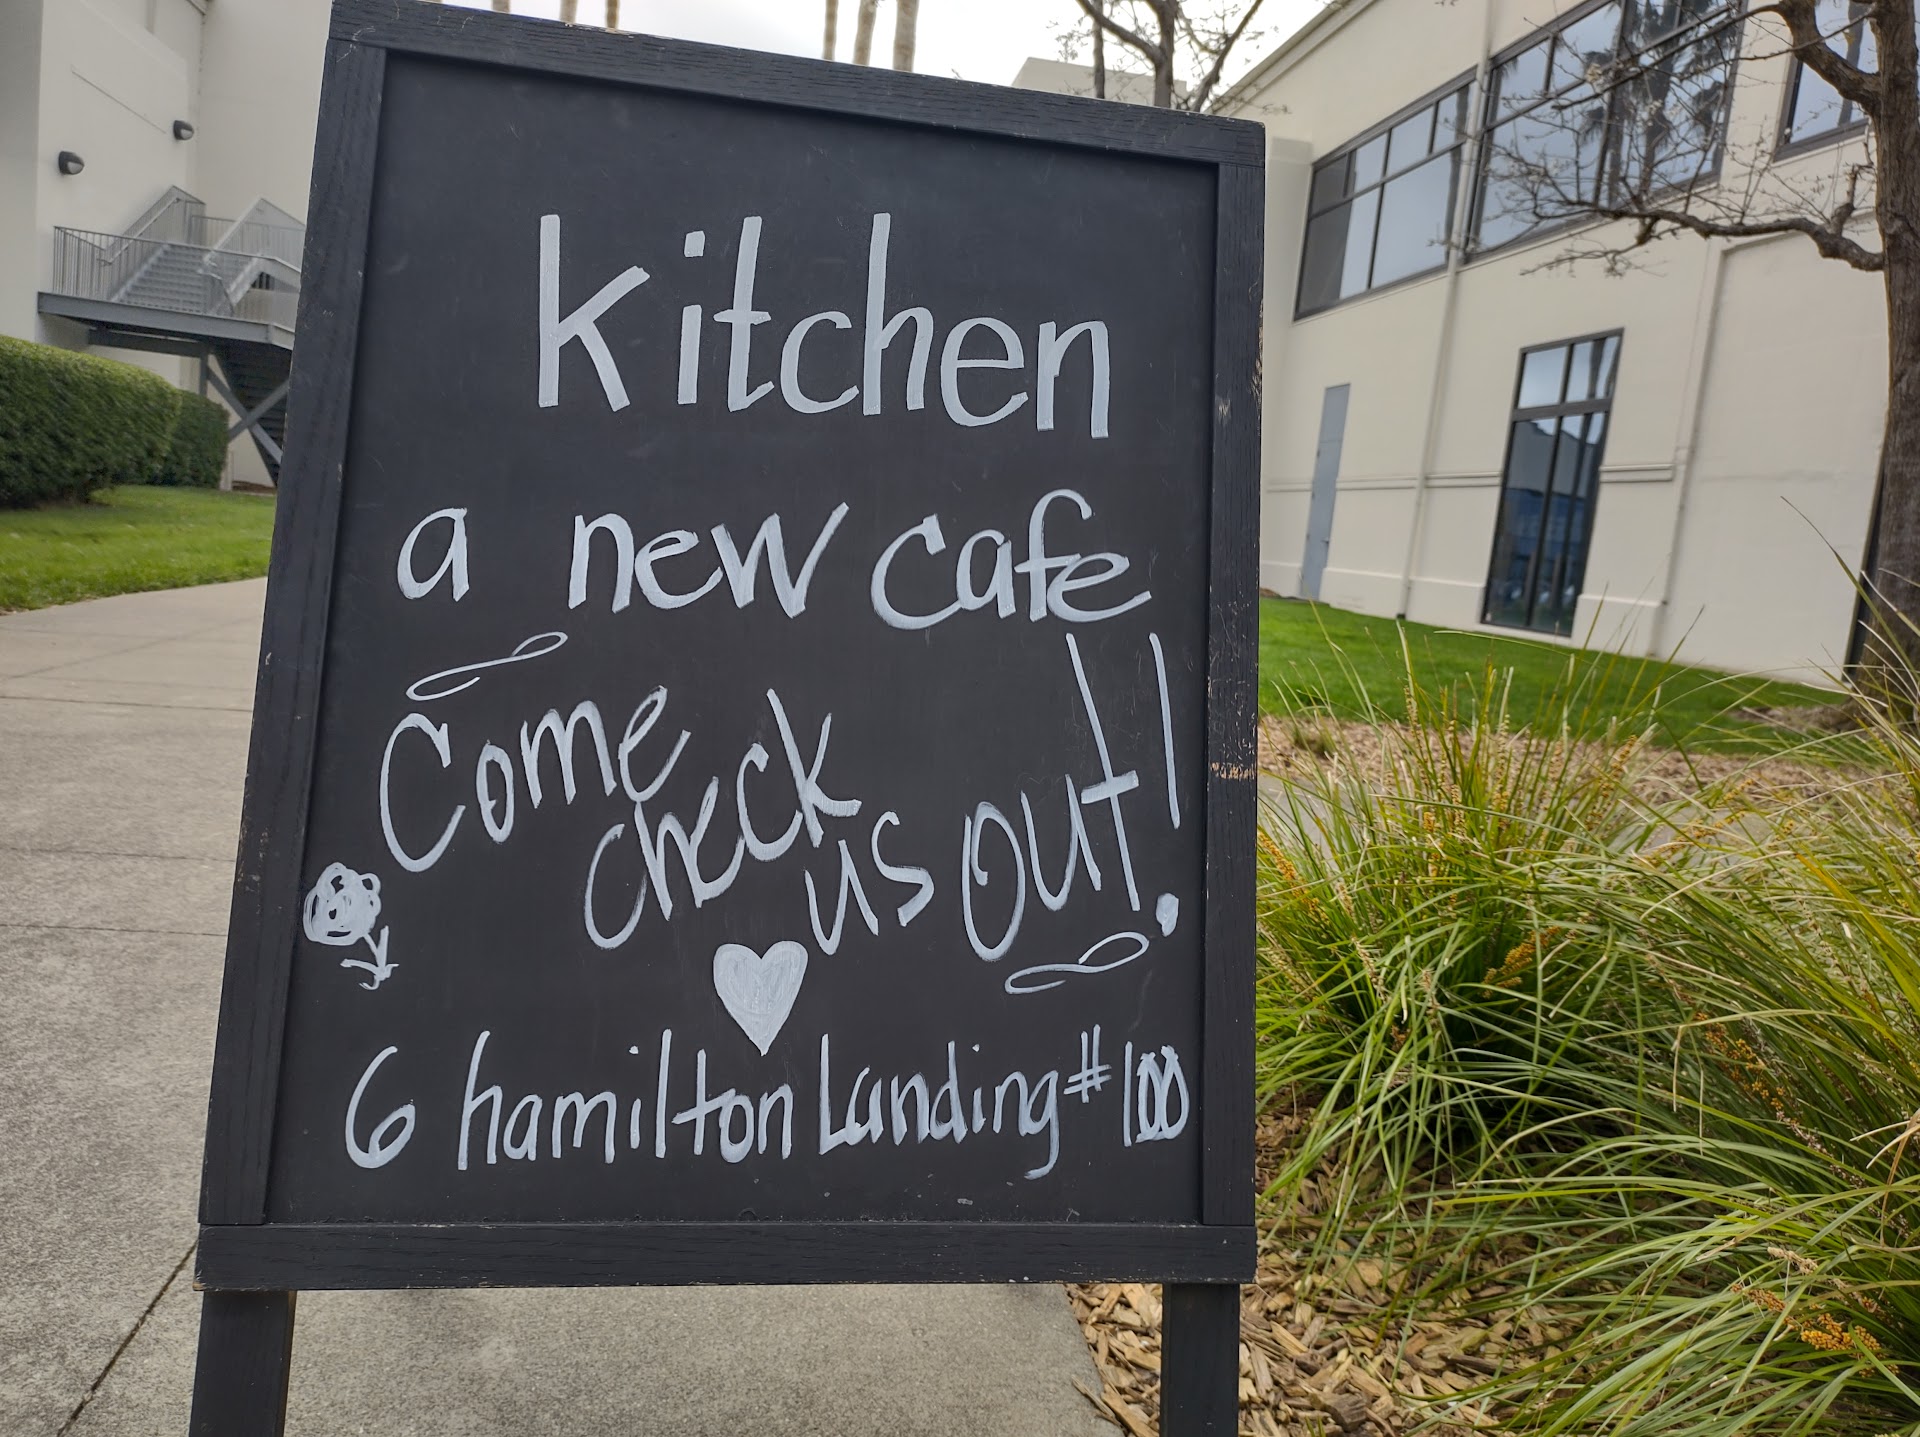 Kitchen
a new cafe
Come check us out!
6 hamilton Landing #100